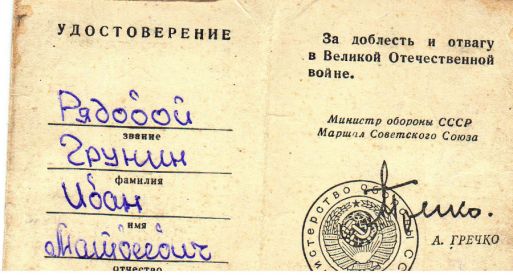 УДОСТОВЕРЕНИЕ
Рядовой
звание
Грунин
фамилия
Иван
имя
Матвеевич
отчество
За доблесть и отвагу
в Великой Отечественной
войне.
Министр обороны СССР
Маршал Советского Союза
Министерство Обороны СССР
А. ГРЕЧКО